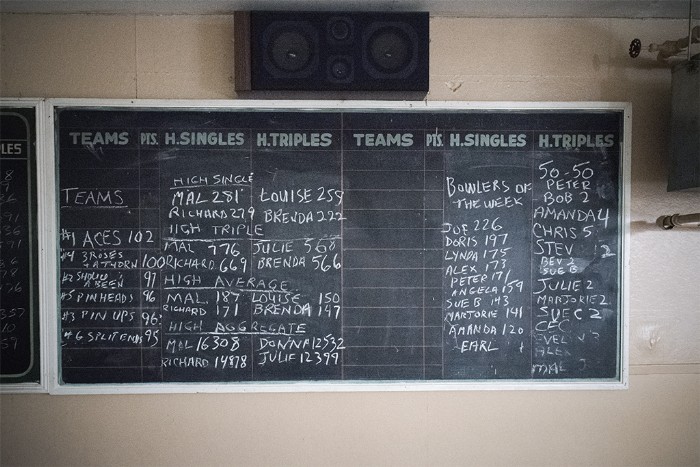 LES
TEAMS PTS. H.SINGLES H.TRIPLES TEAMS PTS. H.SINGLES H.TRIPLES
HIGH SINGLE
MAL 281 LOUISE 259
RICHARD 279 BRENDA 222
HIGH TRIPLE
MAL 776 JULIE 568
RICHARD 669 BRENDA 566
HIGH AVERAGE
MAL 187 LOUISE 150
RICHARD 171 BRENDA 147
HIGH AGGREGATE
MAL 16308 DONNA 12532
RICHARD 14878 JULIE 12399
TEAMS
#1 ACES 102
#4 3 ROSES + A THORN 100
#2 SHOULD A BEEN 97
#5 PINHEADS 96
#3 PIN UPS 96
#6 SPLIT ENDS 95
BOWLERS OF
THE WEEK
JOE 226
DORIS 197
LYNDA 175
ALEX 173
PETER 171
ANGELA 159
SUE B 143
MARJORIE 141
AMANDA 120
EARL
50-50
PETER
BOB 2
AMANDA 4
CHRIS 5
STEV 2
BEV 2
SUE B
JULIE 2
MARJORIE 2
SUE C 2